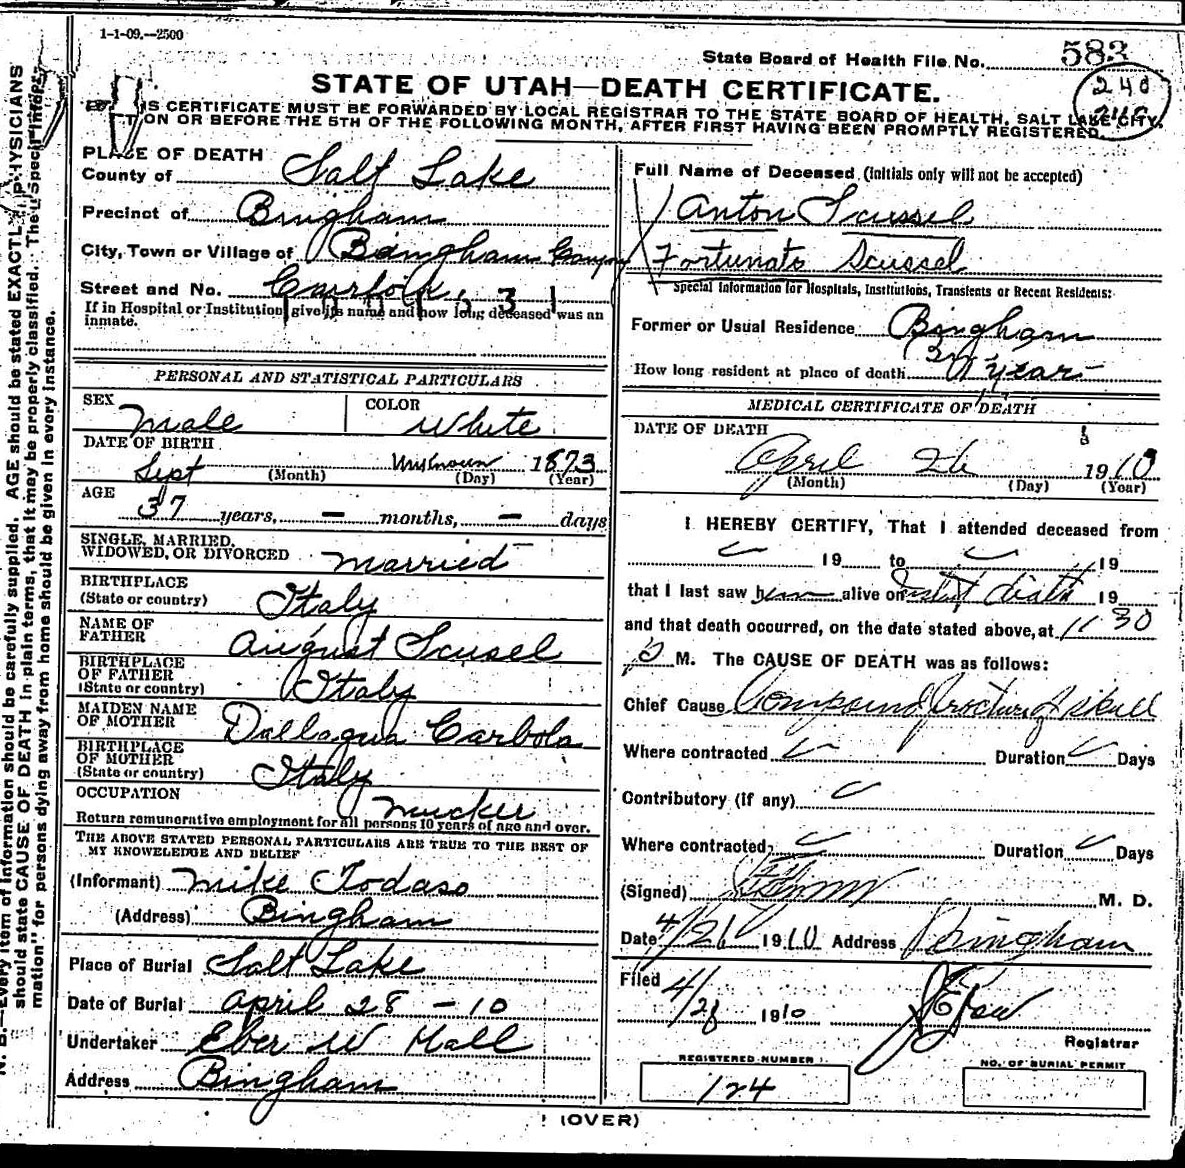 1-1-09.--2500
State Board of Health File No. 583
240
STATE OF UTAH—DEATH CERTIFICATE.
IS CERTIFICATE MUST BE FORWARDED BY LOCAL REGISTRAR TO THE STATE BOARD OF HEALTH, SALT LAKE CITY,
ON OR BEFORE THE 5TH OF THE FOLLOWING MONTH, AFTER FIRST HAVING BEEN PROMPTLY REGISTERED.
N. B.—Every item of information should be carefully supplied. AGE should be stated EXACTLY. PHYSICIANS
should state CAUSE OF DEATH in plain terms, that it may be properly classified. The "Special Infor-
mation" for persons dying away from home should be given in every instance.
PLACE OF DEATH
County of Salt Lake
Precinct of Bingham
City, Town or Village of Bingham Canyon
Street and No. Carfork
If in Hospital or Institution, give its name and how long deceased was an
inmate.
PERSONAL AND STATISTICAL PARTICULARS
SEX Male
COLOR White
DATE OF BIRTH
Sept Unknown 1873
(Month) (Day) (Year)
AGE
37 years, — months, — days
SINGLE, MARRIED,
WIDOWED, OR DIVORCED Married
BIRTHPLACE
(State or country) Italy
NAME OF
FATHER August Scusel
BIRTHPLACE
OF FATHER
(State or country) Italy
MAIDEN NAME
OF MOTHER Dallaqua Carbola
BIRTHPLACE
OF MOTHER
(State or country) Italy
OCCUPATION Mucker
Return remunerative employment for all persons 10 years of age and over.
THE ABOVE STATED PERSONAL PARTICULARS ARE TRUE TO THE BEST OF
MY KNOWELEDGE AND BELIEF
(Informant) Mike Todaso
(Address) Bingham
Place of Burial Salt Lake
Date of Burial April 28 - 10
Undertaker Eber W Hall
Address Bingham
Full Name of Deceased (Initials only will not be accepted)
Anton Scussel
Fortunato Scussel
Special Information for Hospitals, Institutions, Transients or Recent Residents:
Former or Usual Residence Bingham
How long resident at place of death years
MEDICAL CERTIFICATE OF DEATH
DATE OF DEATH
April 26 1910
(Month) (Day) (Year)
I HEREBY CERTIFY, That I attended deceased from
19 to 19
that I last saw him alive on death 19
and that death occurred, on the date stated above, at 11 30
P M. The CAUSE OF DEATH was as follows:
Chief Cause Compound fracture of skull
Where contracted Duration Days
Contributory (if any)
Where contracted Duration Days
(Signed) M. D.
Date 4/26 1910 Address Bingham
Filed 4/28 1910
Registrar
REGISTERED NUMBER
124
NO. OF BURIAL PERMIT
(OVER)